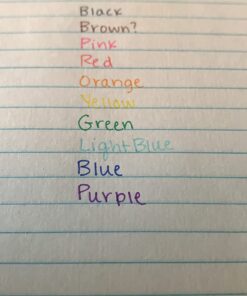 Black
Brown?
Pink
Red
Orange
Yellow
Green
Light Blue
Blue
Purple